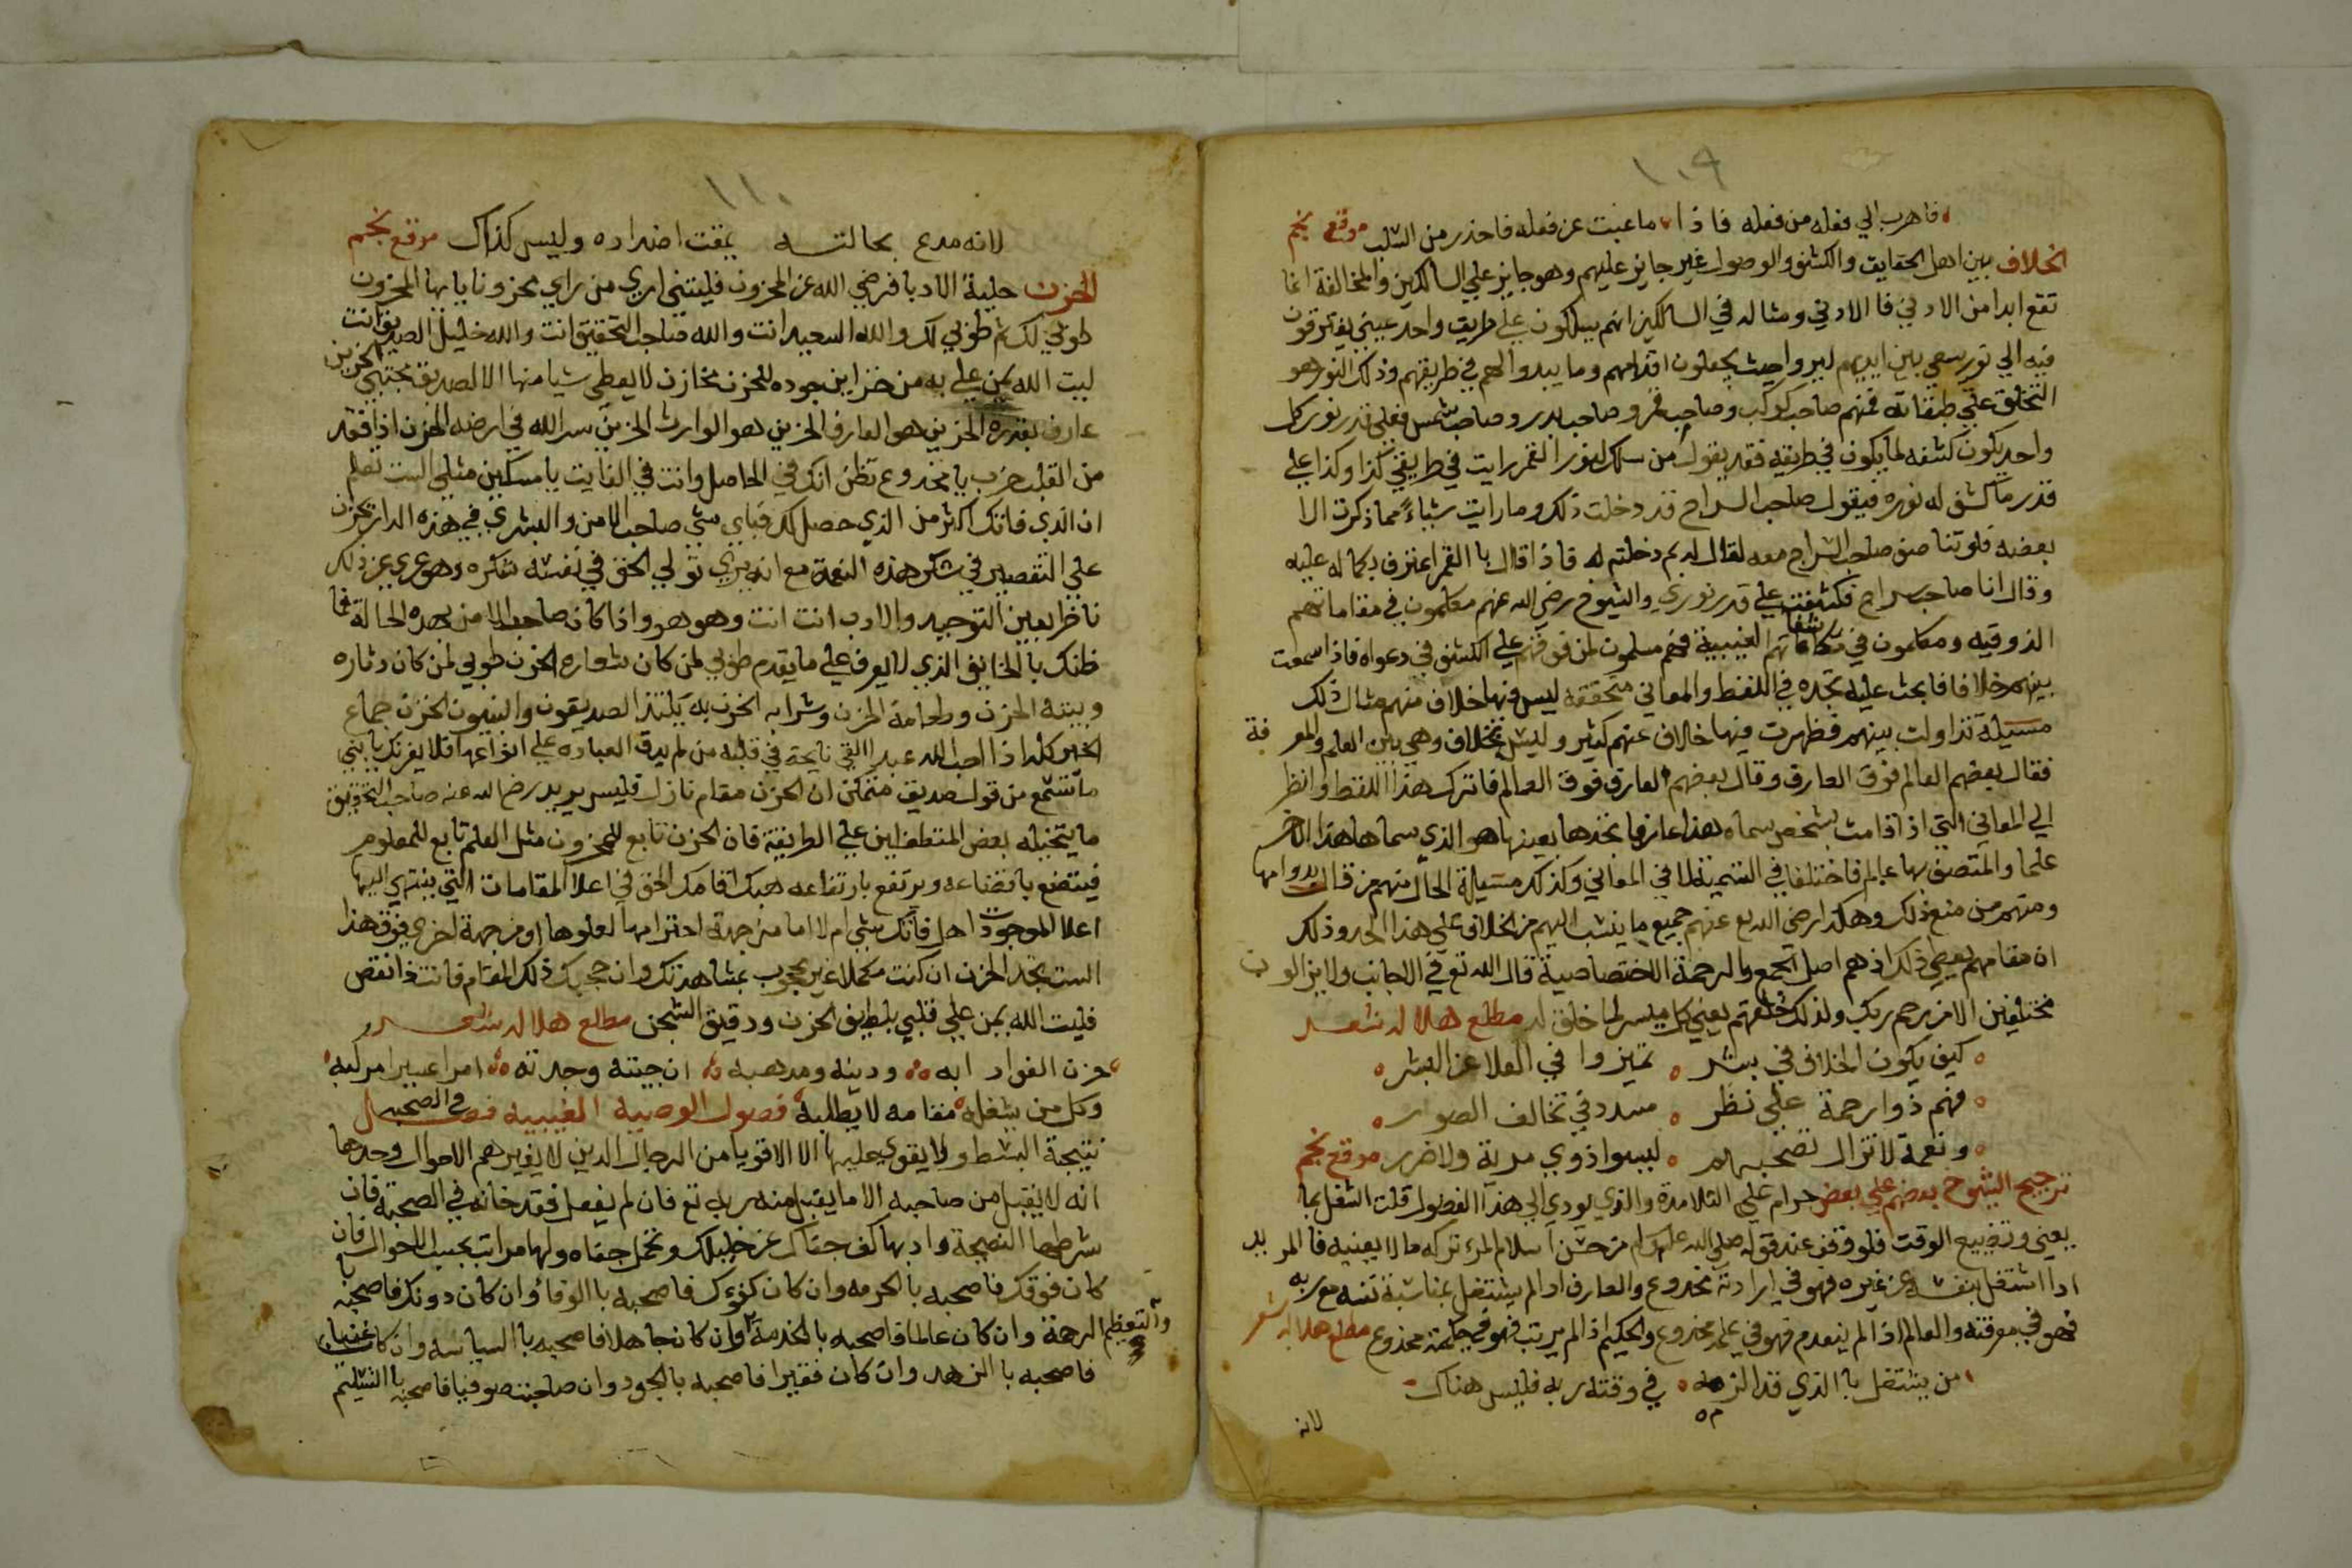 ١٠٩
فاهرب الي فعله من فعله فاذا ما غبت عن فعله فاحذر من السلب موقع نجم
الخلاف بين اهل الحقايق والكشف والوصول غير جايز عليهم وهو جايز علي السالكين والمخالفة انما
تقع ابدا من الادني فالادني ومثاله في السالكين انهم يسلكون علي طريق واحد عيني يفتقرون
فيه الي نور يسعي بين ايديهم ليروا حيث يجعلون اقدامهم وما يبدوا لهم في طريقهم وذلك النور هو
التخلق علي طبقاته فمنهم صاحب كوكب وصاحب قمر وصاحب بدر وصاحب شمس فعلي قدر نور كل
واحد يكون كشفه لما يكون في طريقه فقد يقول من سلك بنور القمر رايت في طريقي كذا وكذا علي
قدر ما كشف له نوره فيقول صاحب السراج قد دخلت ذلك وما رايت شياء مما ذكرت الا
بعضه فلو تناصف صاحب السراج معه لقال له بم دخلتم له فاذا قال بالقمر اعترف بكماله عليه
وقال انا صاحب سراج فكشفت علي قدر نوري والشيوخ رضي الله عنهم متكلمون في مقاماتهم
الذوقيه ومتكلمون في مكاشفاتهم الغيبية فهم مسلمون لمن فوقهم علي الكشف في دعواه فاذا سمعت
بينهم خلافا فابحث عليه تجده في اللفظ والمعاني متحققة ليس فيها خلاف منهم مثال ذلك
مسيلة تداولت بينهم فظهرت فيها خلاف عنهم كثير وليس بخلاف وهي بين العلم والمعرفة
فقال بعضهم العالم فوق العارف وقال بعضهم العارف فوق العالم فاترك هذا اللفظ وانظر
الي المعاني التي اذا قامت بشخص سماه هذا عارفا تجدها بعينها هو الذي سماها هذا الاخر
علما والمتصف بها عالم فاختلفا في التسمية لا في المعاني وكذلك مسيلة الحال منهم من قال بدوامها
ومنهم من منع ذلك وهكذا رضي الله عنهم جميع ما ينسب اليهم من الخلاف علي هذا الحد وذلك
ان مقامهم يعطي ذلك اذ هم اصل الجمع والرحمة الاختصاصية قال الله تع في الاجانب ولا يزالون
مختلفين الا من رحم ربك ولذلك خلقهم يعني كل ميسر لما خلق له مطلع هلال شعر
كيف يكون الخلاف في بشر ٥ تميزوا في العلا عن البشر
فهم ذوا رحمة علي نظر ٥ مسدد في تخالف الصور
ونعمة لا تزال تصحبهم ٥ ليسوا ذوي مرية ولا ضرر موقع نجم
ترجيح الشيوخ بعضهم علي بعض حرام علي التلامذة والذي يودي الي هذا الفضول قلت الشغل بما
يعني وتضييع الوقت فلو وقف عند قوله صلي الله عليه وسلم من حسن اسلام المرء تركه ما لا يعنيه فالمريد
اذا اشتغل بنفسه عن غيره فهو في ارادته مخدوع والعارف اذا لم يشتغل بمناسبة نفسه مع ربه
فهو في معرفته والعالم اذا لم ينعدم فهو في علمه مخدوع والحكيم اذا لم يرتب فهو في حكمته مخدوع مطلع هلال شعر
من يشتغل بالذي قد الزمه ٥ في وقته ربه فليس هناك
لانه
١١٠
لانه مدع بحالته يمقت اضداده وليس كذاك موقع نجم
الحزن حلية الادبا فرضي الله عن المحزون فليتني اري من راي محزونا يا ايها المحزون
طوبي لك ثم طوبي لك والله السعيد انت والله صاحب التحقيق انت والله خليل الصديق انت
ليت الله يمن علي به من خزاين جوده للحزن مخازن لا يعطي شيا منها الا لصديق مجتبي الحزين
عارف بقدره الحزين هو العارف الحزين هو الوارث الحزين سر الله في ارضه الحزن اذا فقد
من القلب خرب يا مخدوع تظن انك في الحاصل وانت في الفايت يا مسكين مثلي الست تعلم
ان الذي فاتك اكثر من الذي حصل لك فباي شي صاحب الامن والبشري في هذه الدار يحزن
علي التقصير في شكر هذه النعمة مع انه يري تولي الحق في نفسه شكره وهو عري عن ذلك
ناظرا بعين التوحيد والادب انت انت وهو هو واذا كان صاحب الامن بهذه الحالة فما
ظنك بالخايف الذي لا يعرف علي ما يقدم طوبي لمن كان شعاره الحزن طوبي لمن كان دثاره
وبيته الحزن وطعامه الحزن وشرابه الحزن به يلتذ الصديقون والنبيون الحزن جماع
الخير كله اذا احب الله عبدا القي نايحة في قلبه من لم يذق العباره علي انواعها فلا يغرنك يا بني
ما تسمع من قول صديق متمكن ان الحزن مقام نازل فليس يريد رضي الله عنه صاحب التحقيق
ما يتخيله بعض المتطفلين علي الطريقة فان الحزن تابع للمحزون مثل العلم تابع للمعلوم
فيتضع باتضاعه ويرتفع بارتفاعه هبك اقامك الحق في اعلا المقامات التي ينتهي اليها
اعلا الموجودات اهل فاتك شي ام لا اما من جهة احترامها لعلوها او من جهة اخري فوق هذا
الست تجد الحزن ان كنت مكملا غير محجوب بمشاهدتك وان حجبك ذلك المقام فانت ذا نقص
فليت الله يمن علي قلبي بلطيف الحزن ودقيق الشجن مطلع هلال شعر
حزن الفواد ادبه ٥ ودينه ومذهبه ٥ ان جيته وجدته ٥ امرا عسيرا مركبه
وكل من يشغله مقامه لا يطلبه فصول الوصية الغيبيه فصل في الصحبه
نتيجة البسط ولا يقوي عليها الا الاقويا من الرجال الذين لا يغيرهم الاحوال وحدها
انه لا يقبل من صاحبه الا ما يقبل منه ربه تع فان لم يفعل فقد خانه في الصحبة فان
شرطها النصيحة وادبها كف جفاك عن خليلك وتحمل جفاه ولها مراتب بحسب الاحوال فان
كان فوقك فاصحبه بالحرمه وان كان كفؤك فاصحبه بالوفاء وان كان دونك فاصحبه با
لرحمة وان كان عالما فاصحبه بالخدمة والتعظيم وان كان جاهلا فاصحبه بالسياسه وان كان غنيا
فاصحبه بالزهد وان كان فقيرا فاصحبه بالجود وان صاحبت صوفيا فاصحبه بالتسليم